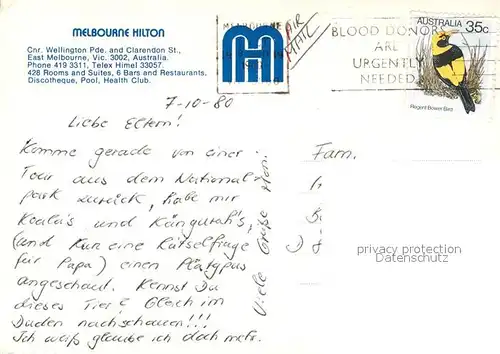 MELBOURNE HILTON
Cnr. Wellington Pde. and Clarendon St.,
East Melbourne, Vic. 3002, Australia.
Phone 419 3311, Telex Himel 33057.
428 Rooms and Suites, 6 Bars and Restaurants,
Discotheque, Pool, Health Club.
MELBOURNE
AIR
MAIL
BLOOD DONORS
ARE
URGENTLY
NEEDED
AUSTRALIA
35c
Regent Bower Bird
7-10-80
Liebe Eltern!
Komme gerade von einer
Tour aus dem National
park zurück, habe mir
Koala's und Känguruh's,
(und nur eine Rätselfrage
für Papa) einen Platypus
angeschaut. Kennst Du
dieses Tier? Gleich im
Duden nachschauen!!!
Ich weiß glaube ich doch mehr.
Viele Grüße
Fam.
privacy protection
Datenschutz